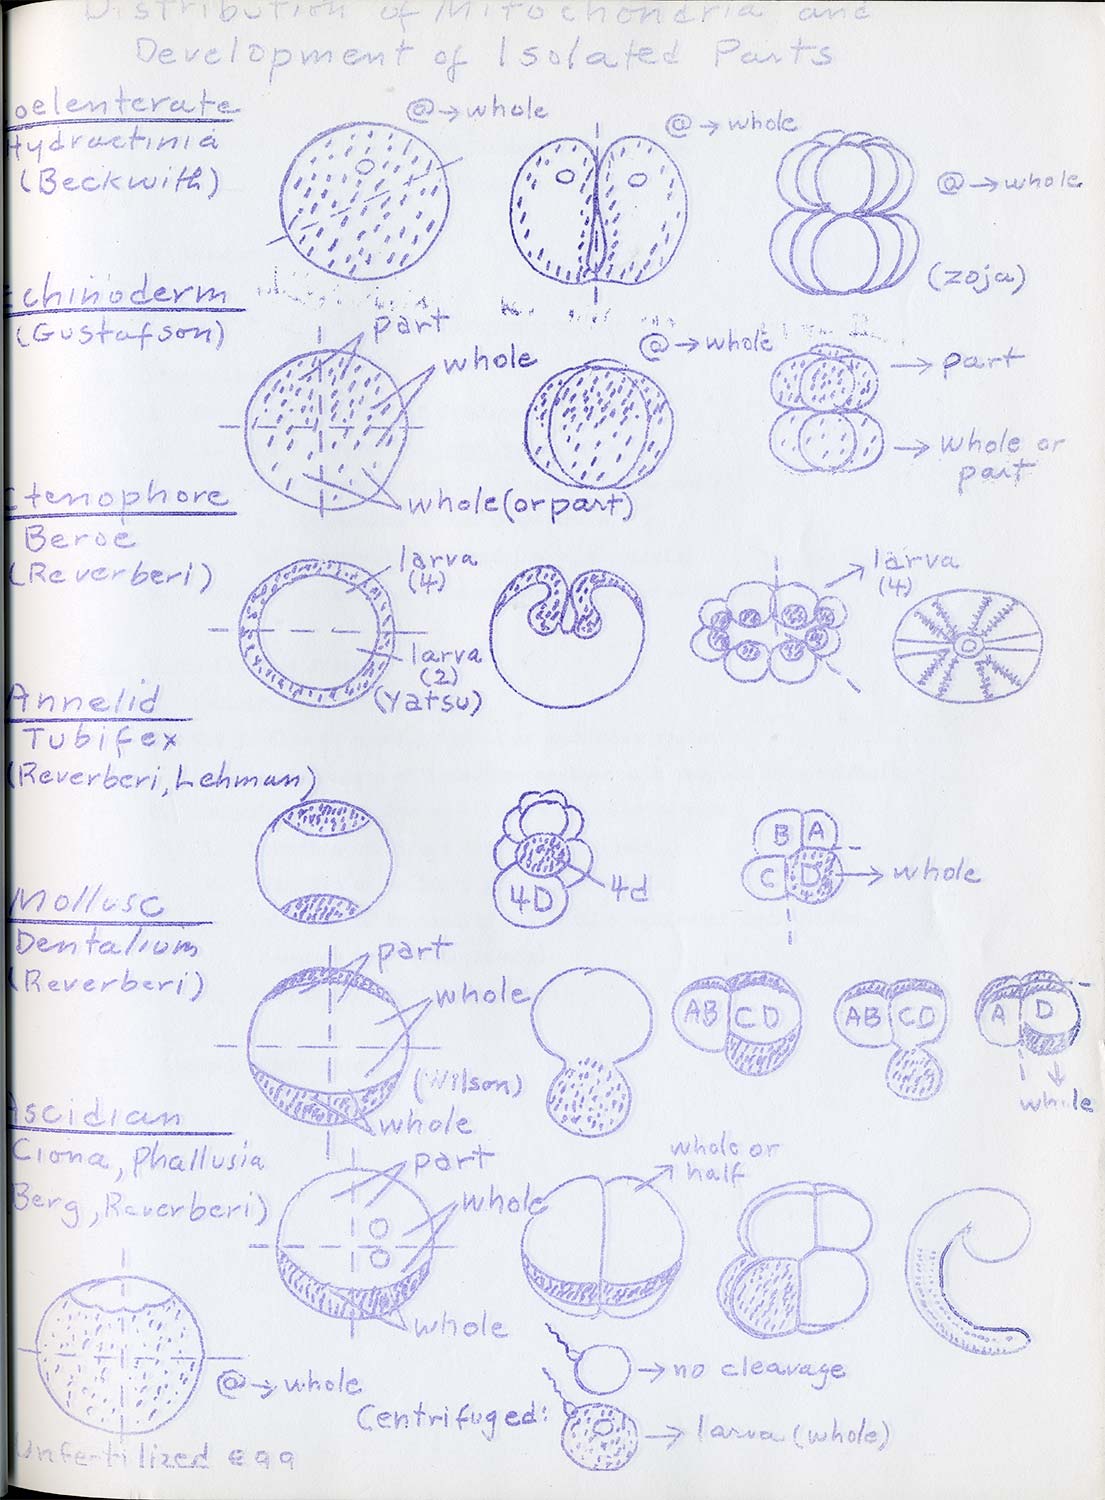 Distribution of Mitochondria and
Development of Isolated Parts
oelenterate
Hydractinia
(Beckwith)
@→whole
@→whole
@→whole
(Zoja)
Echinoderm
(Gustafson)
part
whole
whole(or part)
@→whole
→ part
→ whole or
part
Ctenophore
Beroe
(Reverberi)
larva
(4)
larva
(2)
(Yatsu)
larva
(4)
Annelid
Tubifex
(Reverberi, Lehman)
4D
4d
B A
C D
→ whole
Mollusc
Dentalium
(Reverberi)
part
whole
(Wilson)
whole
AB CD
AB CD
A D
whole
Ascidian
Ciona, Phallusia
Berg, Reverberi)
part
whole
whole
whole or
half
@→ whole
Unfertilized egg
→ no cleavage
Centrifuged:
→ larva (whole)